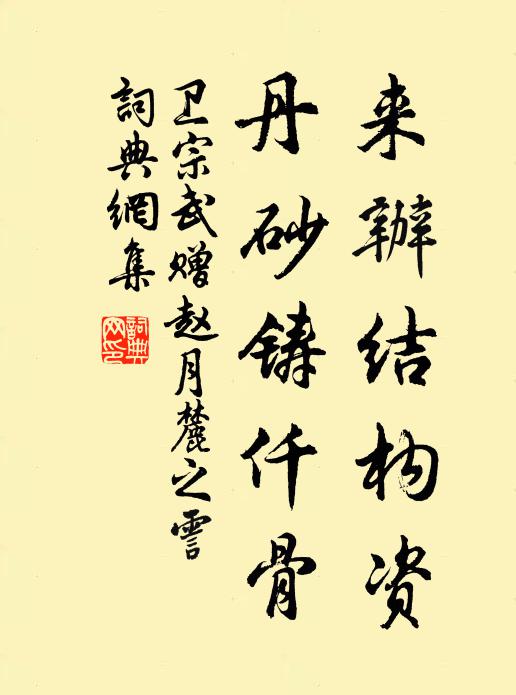 来辦结构资
丹砂铸仟骨
卫宗武赠赵月麓之霅
詞典網集
詞典網印